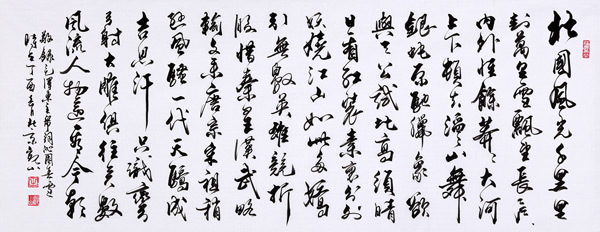 北國風光千里冰
封萬里雪飄望長城
内外惟餘莽莽大河
上下頓失滔滔山舞
銀蛇原馳臘象欲
與天公試比高須晴
日看紅裝素裹分外
妖嬈江山如此多嬌
引無數英雄競折
腰惜秦皇漢武略
輸文采唐宗宋祖稍
遜風騷一代天驕成
吉思汗只識彎
弓射大雕俱往矣數
風流人物還看今朝
敬錄毛澤東主席詞沁園春雪
時在丁酉